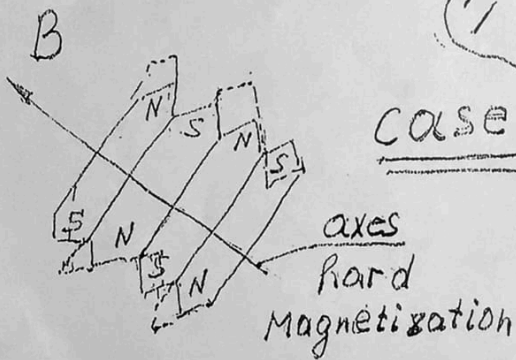 1
B
N
S
N
S
case
S
N
S
N
axes
hard
Magnetization